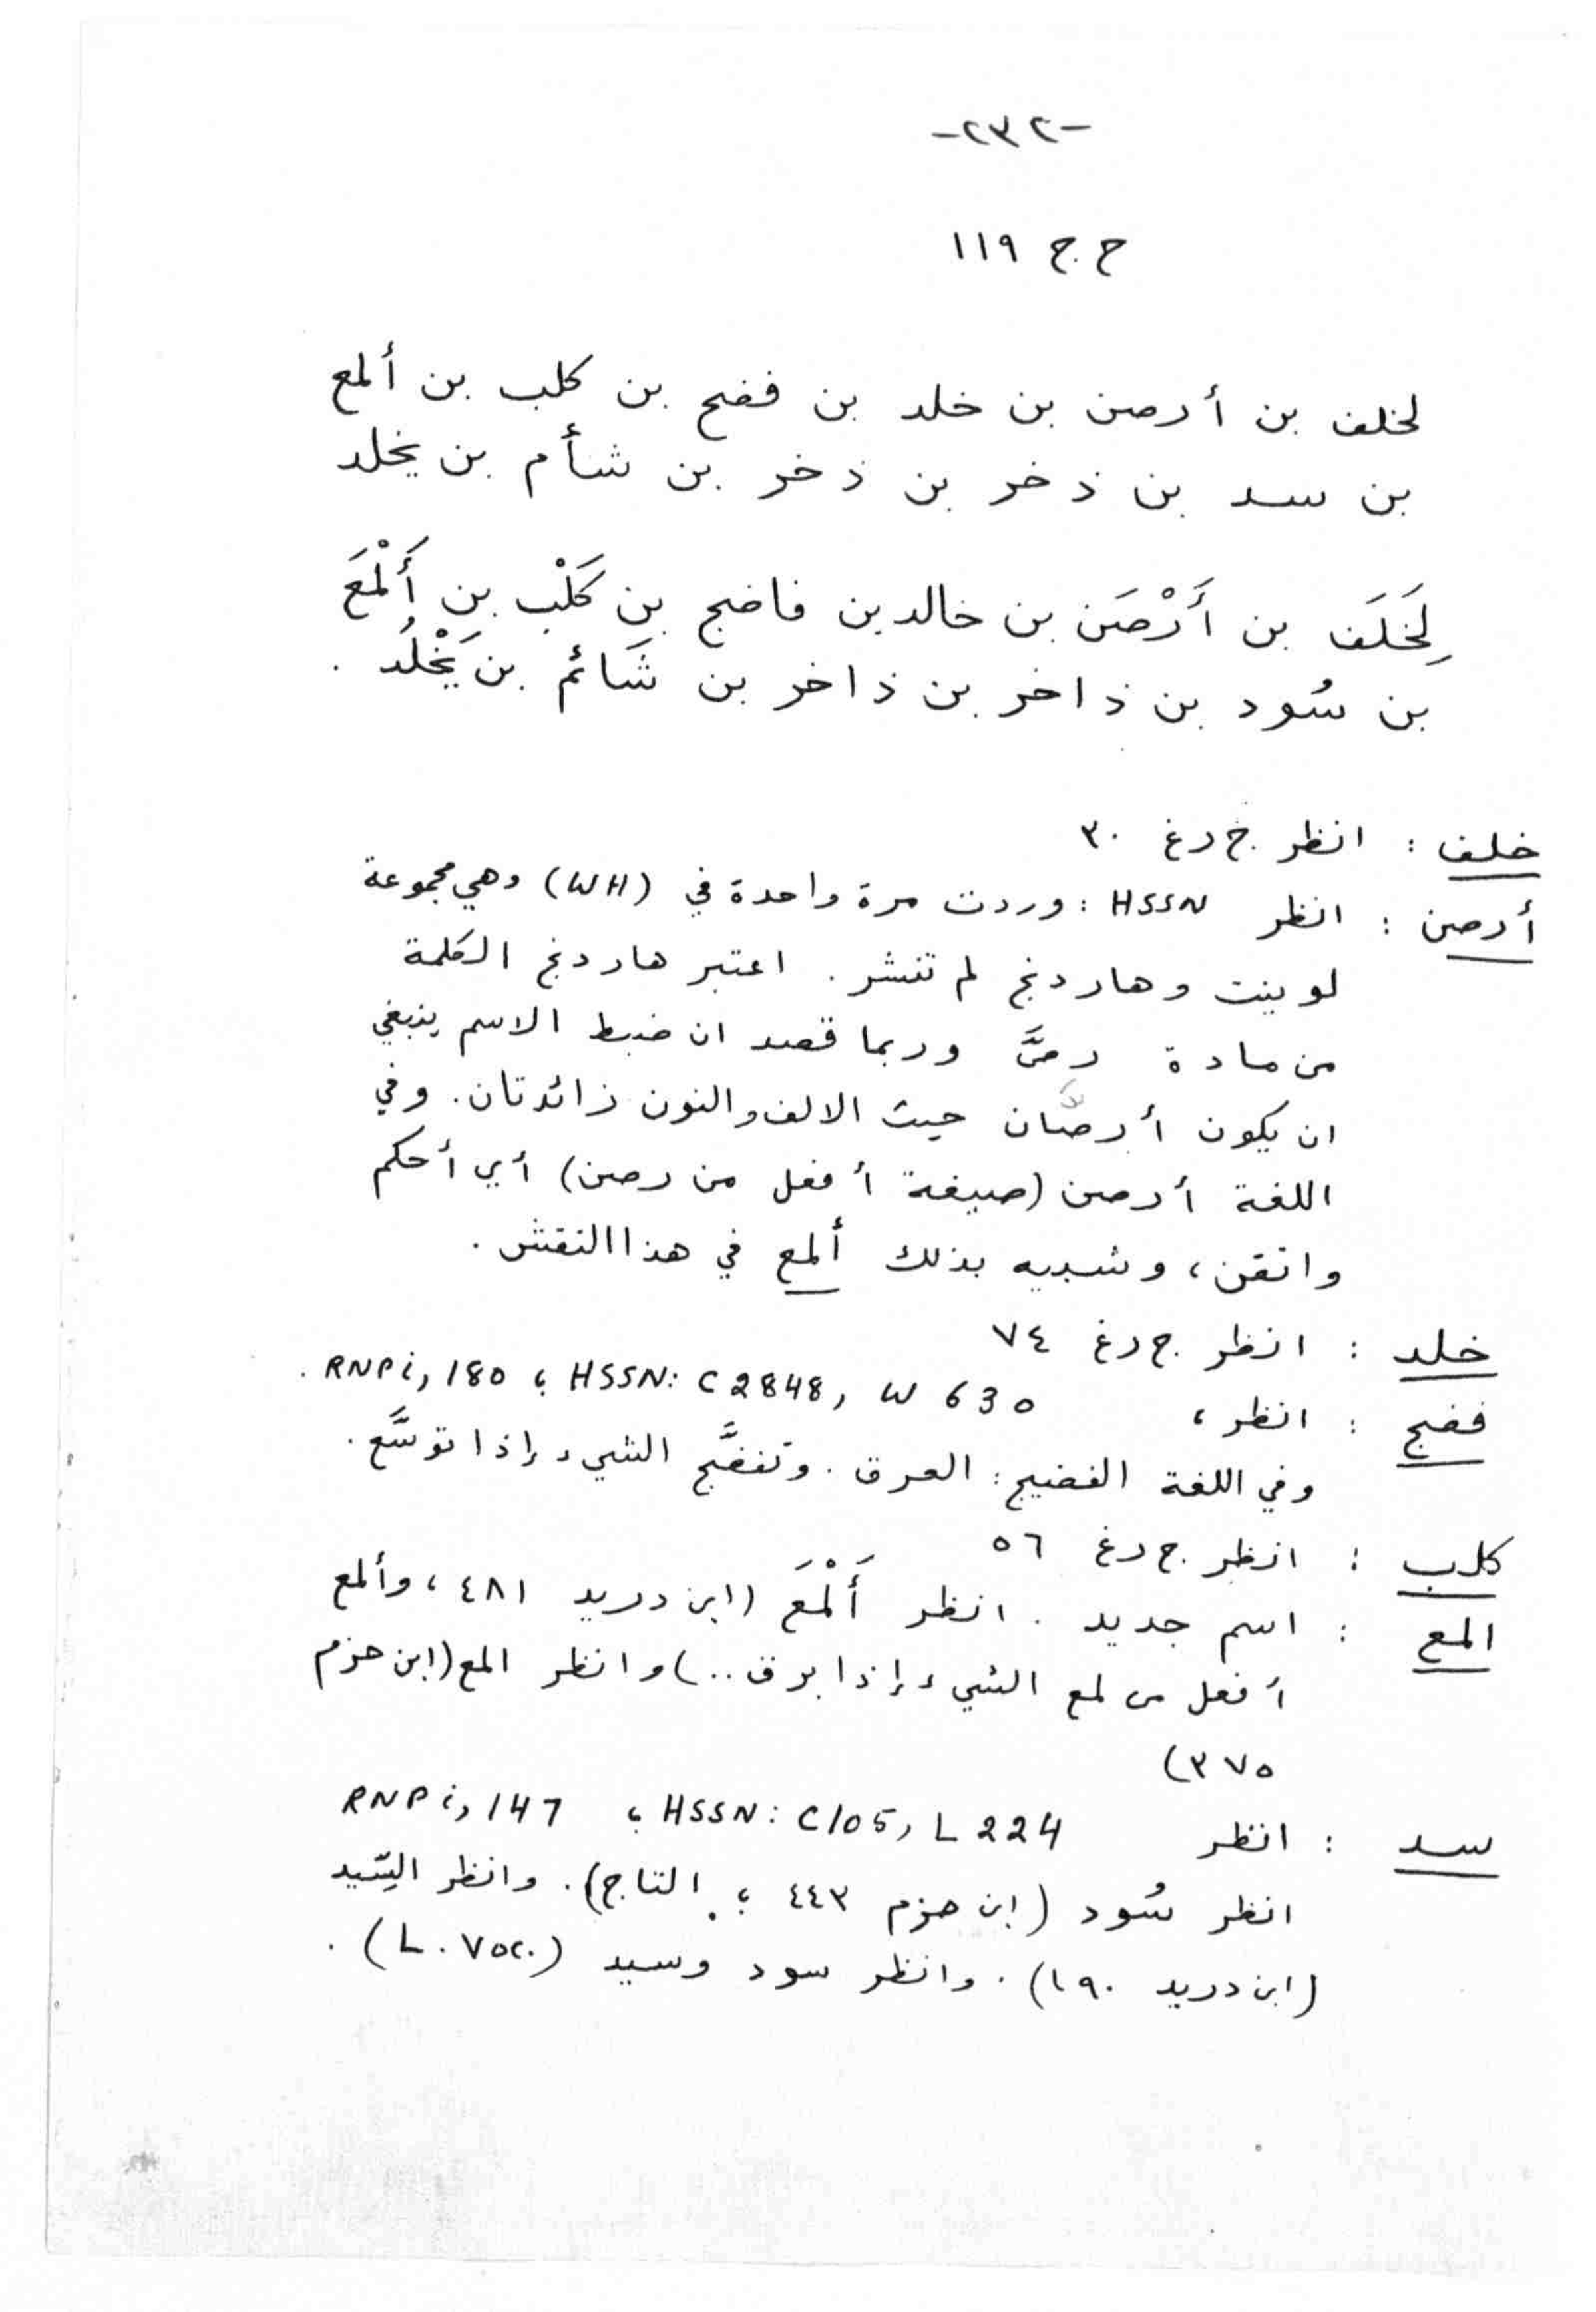 -٢٣٢-
ح ج ١١٩
لخلف بن أرصن بن خلد بن فضج بن كلب بن ألمع
بن سد بن ذخر بن ذخر بن شأم بن يخلد
لِخَلَف بن أَرْصَن بن خالد بن فاضج بن كَلْب بن أَلْمَعَ
بن سُود بن ذاخر بن ذاخر بن شَائم بن يَخْلُد .
خلف : انظر ج رغ ٣٠
أرصن : انظر HSSN : وردت مرة واحدة في (WH) وهي مجموعة
لوينت وهاردنج لم تنشر . اعتبر هاردنج الكلمة
من مادة رصَّ وربما قصد ان ضبط الاسم ينبغي
ان يكون أرصَّان حيث الالف والنون زائدتان . وفي
اللغة أرصن (صيغة أفعل من رصن) أي أحكم
واتقن ، وشبيه بذلك ألمع في هذا النقش .
خلد : انظر ج رغ ٧٤
فضج : انظر ، RNP i, 180 ؛ HSSN: C 2848, W 630 .
وفي اللغة الفضيج : العرق . وتفضَّج الشيء إذا توسَّع .
كلب : انظر ج رغ ٥٦
المع : اسم جديد . انظر أَلْمَعَ (ابن دريد ٤٨١ ، وألمع
أفعل من لمع الشيء إذا برق ..) وانظر المع (ابن حزم
٣٧٥)
سد : انظر RNP i, 147 ؛ HSSN: C105, L 224
انظر سُود (ابن حزم ٤٤٣ ؛ التاج) . وانظر السِّيد
(ابن دريد ١٩٠) . وانظر سود وسيد (L. Voc.) .